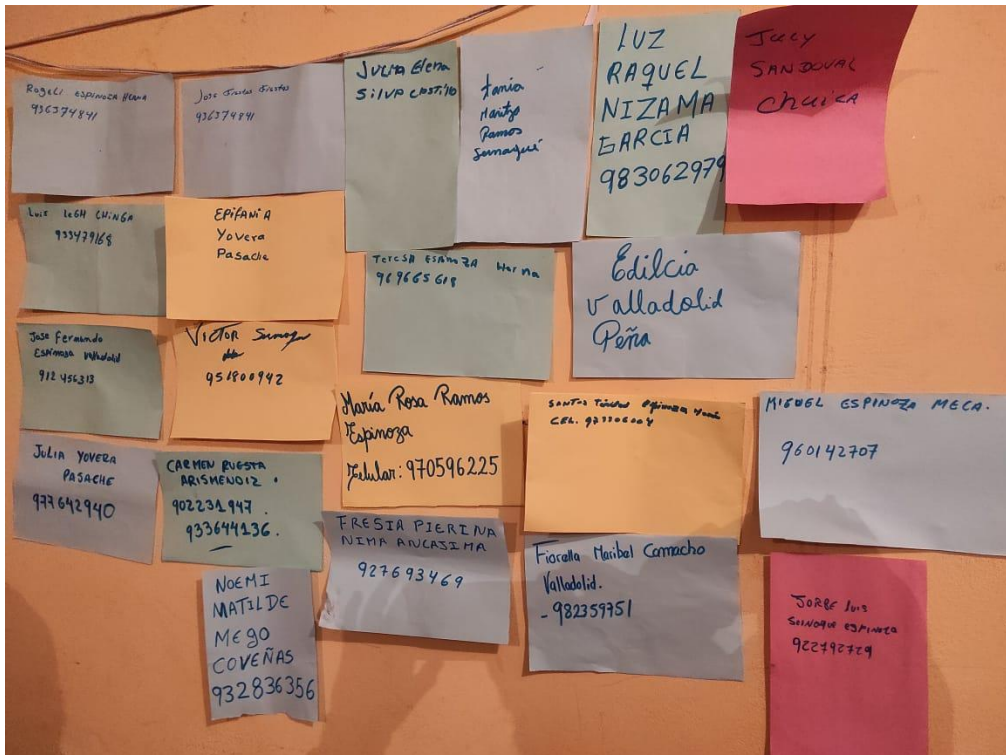 Rogeli ESPINOZA
936374841
Jose
936374841
JULIA Elena
SILVA CASTILLO
tania
Maritza
Ramos
LUZ
RAQUEL
NIZAMA
GARCIA
983062979
SANDOVAL
Luis LEGH CHINGA
933479168
EPIFANIA
Yovera
Pasache
TERESA ESPINOZA
969665618
Edilcia
Valladolid
Peña
Jose Fernando
Espinoza Valladolid
912456313
VICTOR
951800942
María Rosa Ramos
Espinoza
Celular: 970596225
SANTOS
CEL.
MIGUEL ESPINOZA MECA.
960142707
JULIA YOVERA
PASACHE
977642940
CARMEN RUESTA
ARISMENDIZ.
902231947.
933644136.
FRESIA PIERINA
NIMA ANCAJIMA
927693469
Fiorella Maribel Camacho
Valladolid.
- 982359751
NOEMI
MATILDE
MEGO
COVEÑAS
932836356
JORGE Luis
ESPINOZA
922792729